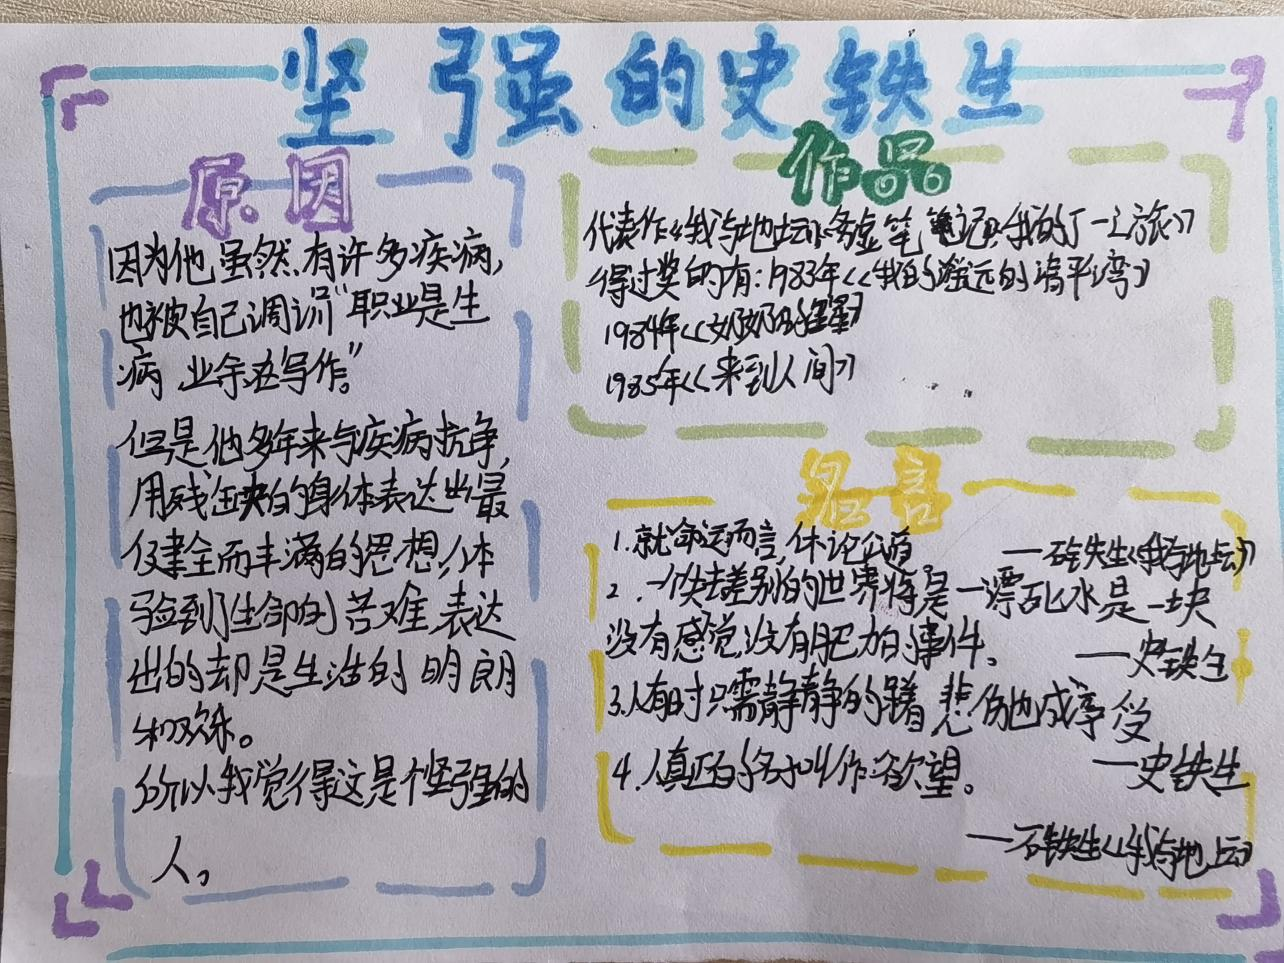 坚强的史铁生
原因
因为他虽然有许多疾病,
也被自己调侃“职业是生
病 业余在写作。”
但是他多年来与疾病抗争,
用残缺的身体表达出最
健全而丰满的思想,体
验到生命的苦难,表达
出的却是生活的明朗
和欢乐。
所以我觉得这是个坚强的
人。
作品
代表作《我与地坛》务虚笔笔记《我的丁一之旅》
得过奖的有:1983年《我的遥远的清平湾》
1984年《奶奶的星星》
1985年《来到人间》
名言
1.就命运而言,休论公道
——史铁生《我与地坛》
2.一个失去差别的世界将是一潭死水是一块
没有感觉没有肥力的事件。
——史铁生
3.人有时只需静静的躺着 悲伤也成享受
——史铁生
4.人真正的名字叫作欲望。
——史铁生《我与地坛》